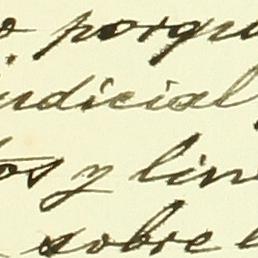 o porqu
judicial
tos y lin
sobre e